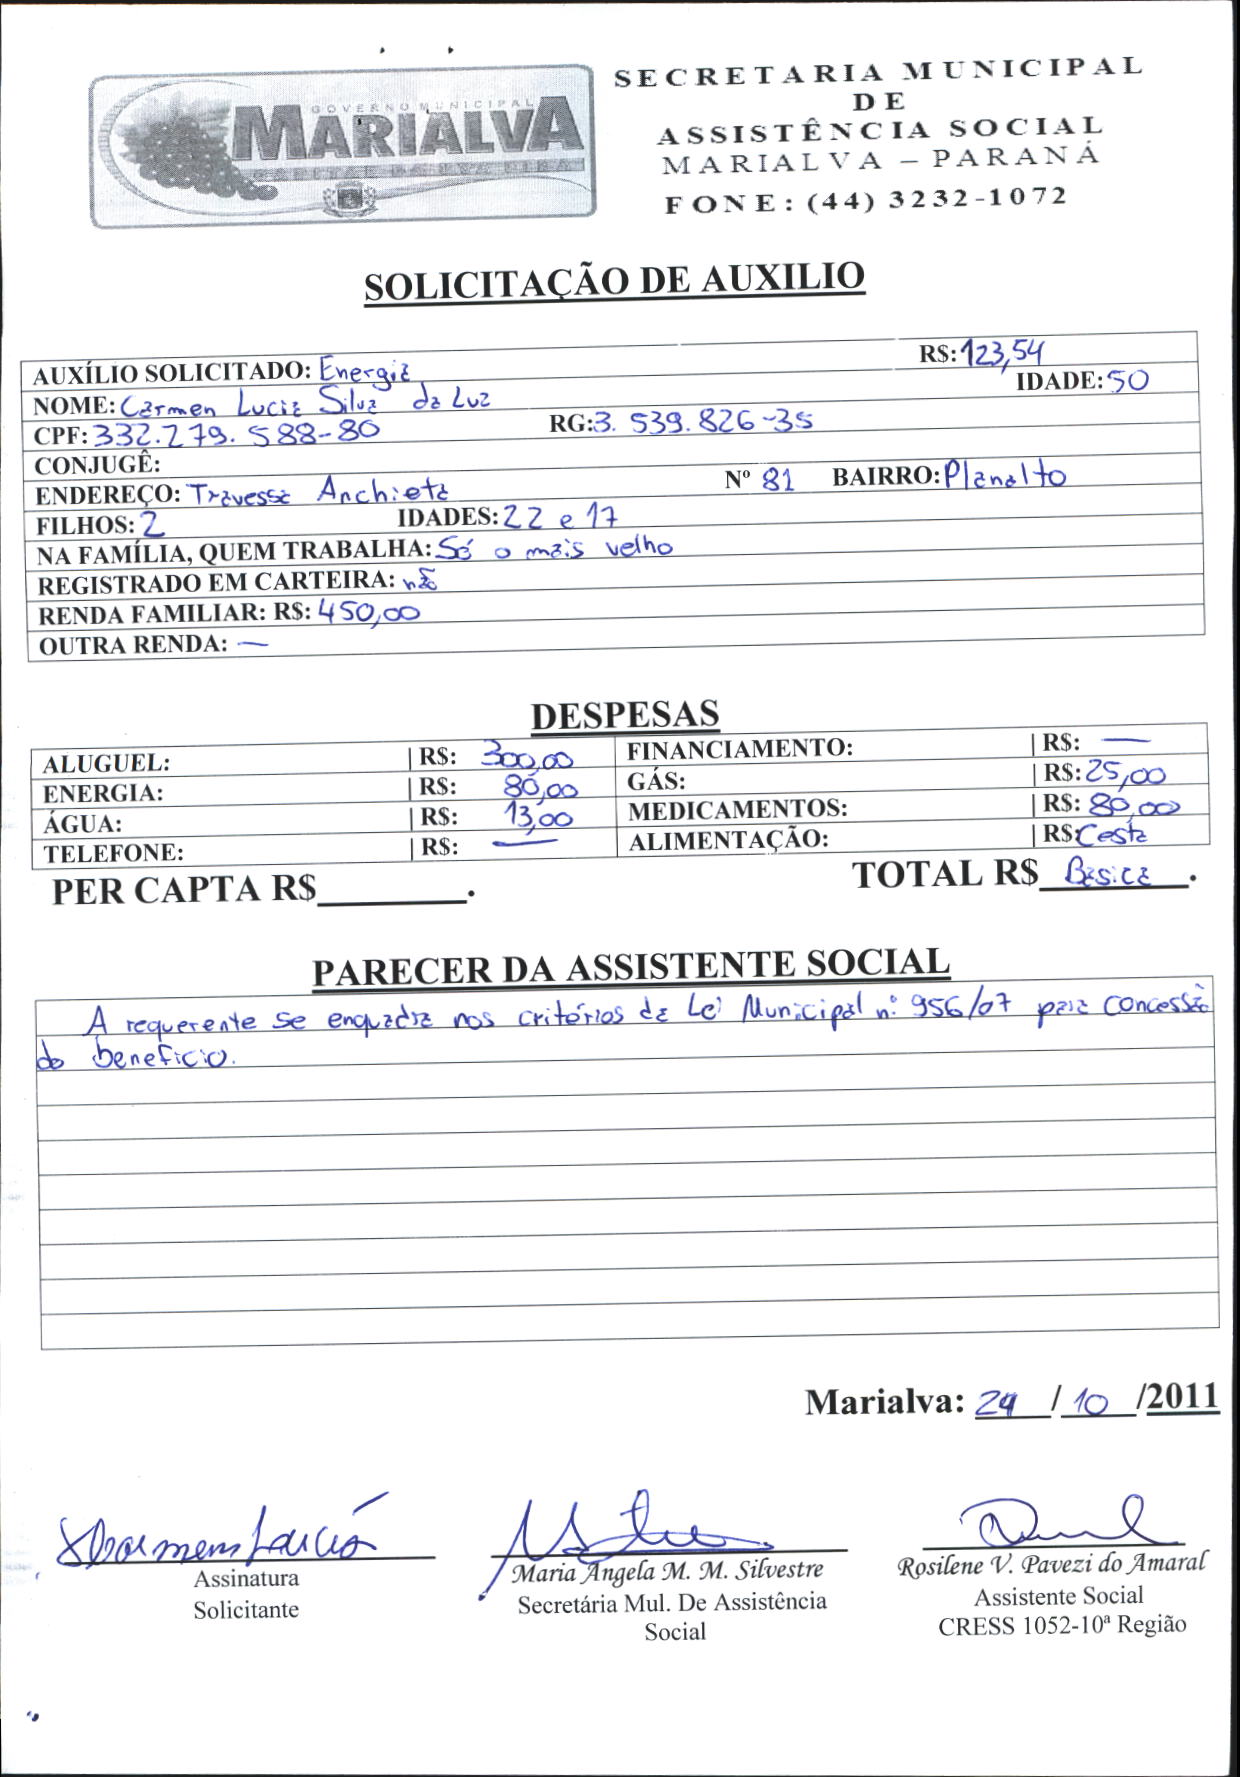 GOVERNO MUNICIPAL
MARIALVA
CAPITAL DA UVA FINA
SECRETARIA MUNICIPAL
DE
ASSISTÊNCIA SOCIAL
MARIALVA – PARANÁ
FONE: (44) 3232-1072
SOLICITAÇÃO DE AUXILIO
AUXÍLIO SOLICITADO: Energia R$: 123,54
NOME: Carmen Lucia Silva da Luz IDADE: 50
CPF: 332.279.588-80 RG: 3.539.826-35
CONJUGÊ:
ENDEREÇO: Travessa Anchieta Nº 81 BAIRRO: Planalto
FILHOS: 2 IDADES: 22 e 17
NA FAMÍLIA, QUEM TRABALHA: Só o mais velho
REGISTRADO EM CARTEIRA: não
RENDA FAMILIAR: R$: 450,00
OUTRA RENDA: —
DESPESAS
ALUGUEL: | R$: 300,00 FINANCIAMENTO: | R$: —
ENERGIA: | R$: 80,00 GÁS: | R$: 25,00
ÁGUA: | R$: 13,00 MEDICAMENTOS: | R$: 80,00
TELEFONE: | R$: — ALIMENTAÇÃO: | R$: Cesta
PER CAPTA R$________. TOTAL R$ Básica.
PARECER DA ASSISTENTE SOCIAL
A requerente se enquadra nos critérios da Lei Municipal nº 956/07 para concessão
do benefício.
Marialva: 24 / 10 /2011
Carmem Lucia
Assinatura
Solicitante
Maria Angela M. M. Silvestre
Secretária Mul. De Assistência
Social
Rosilene V. Pavezi do Amaral
Assistente Social
CRESS 1052-10ª Região